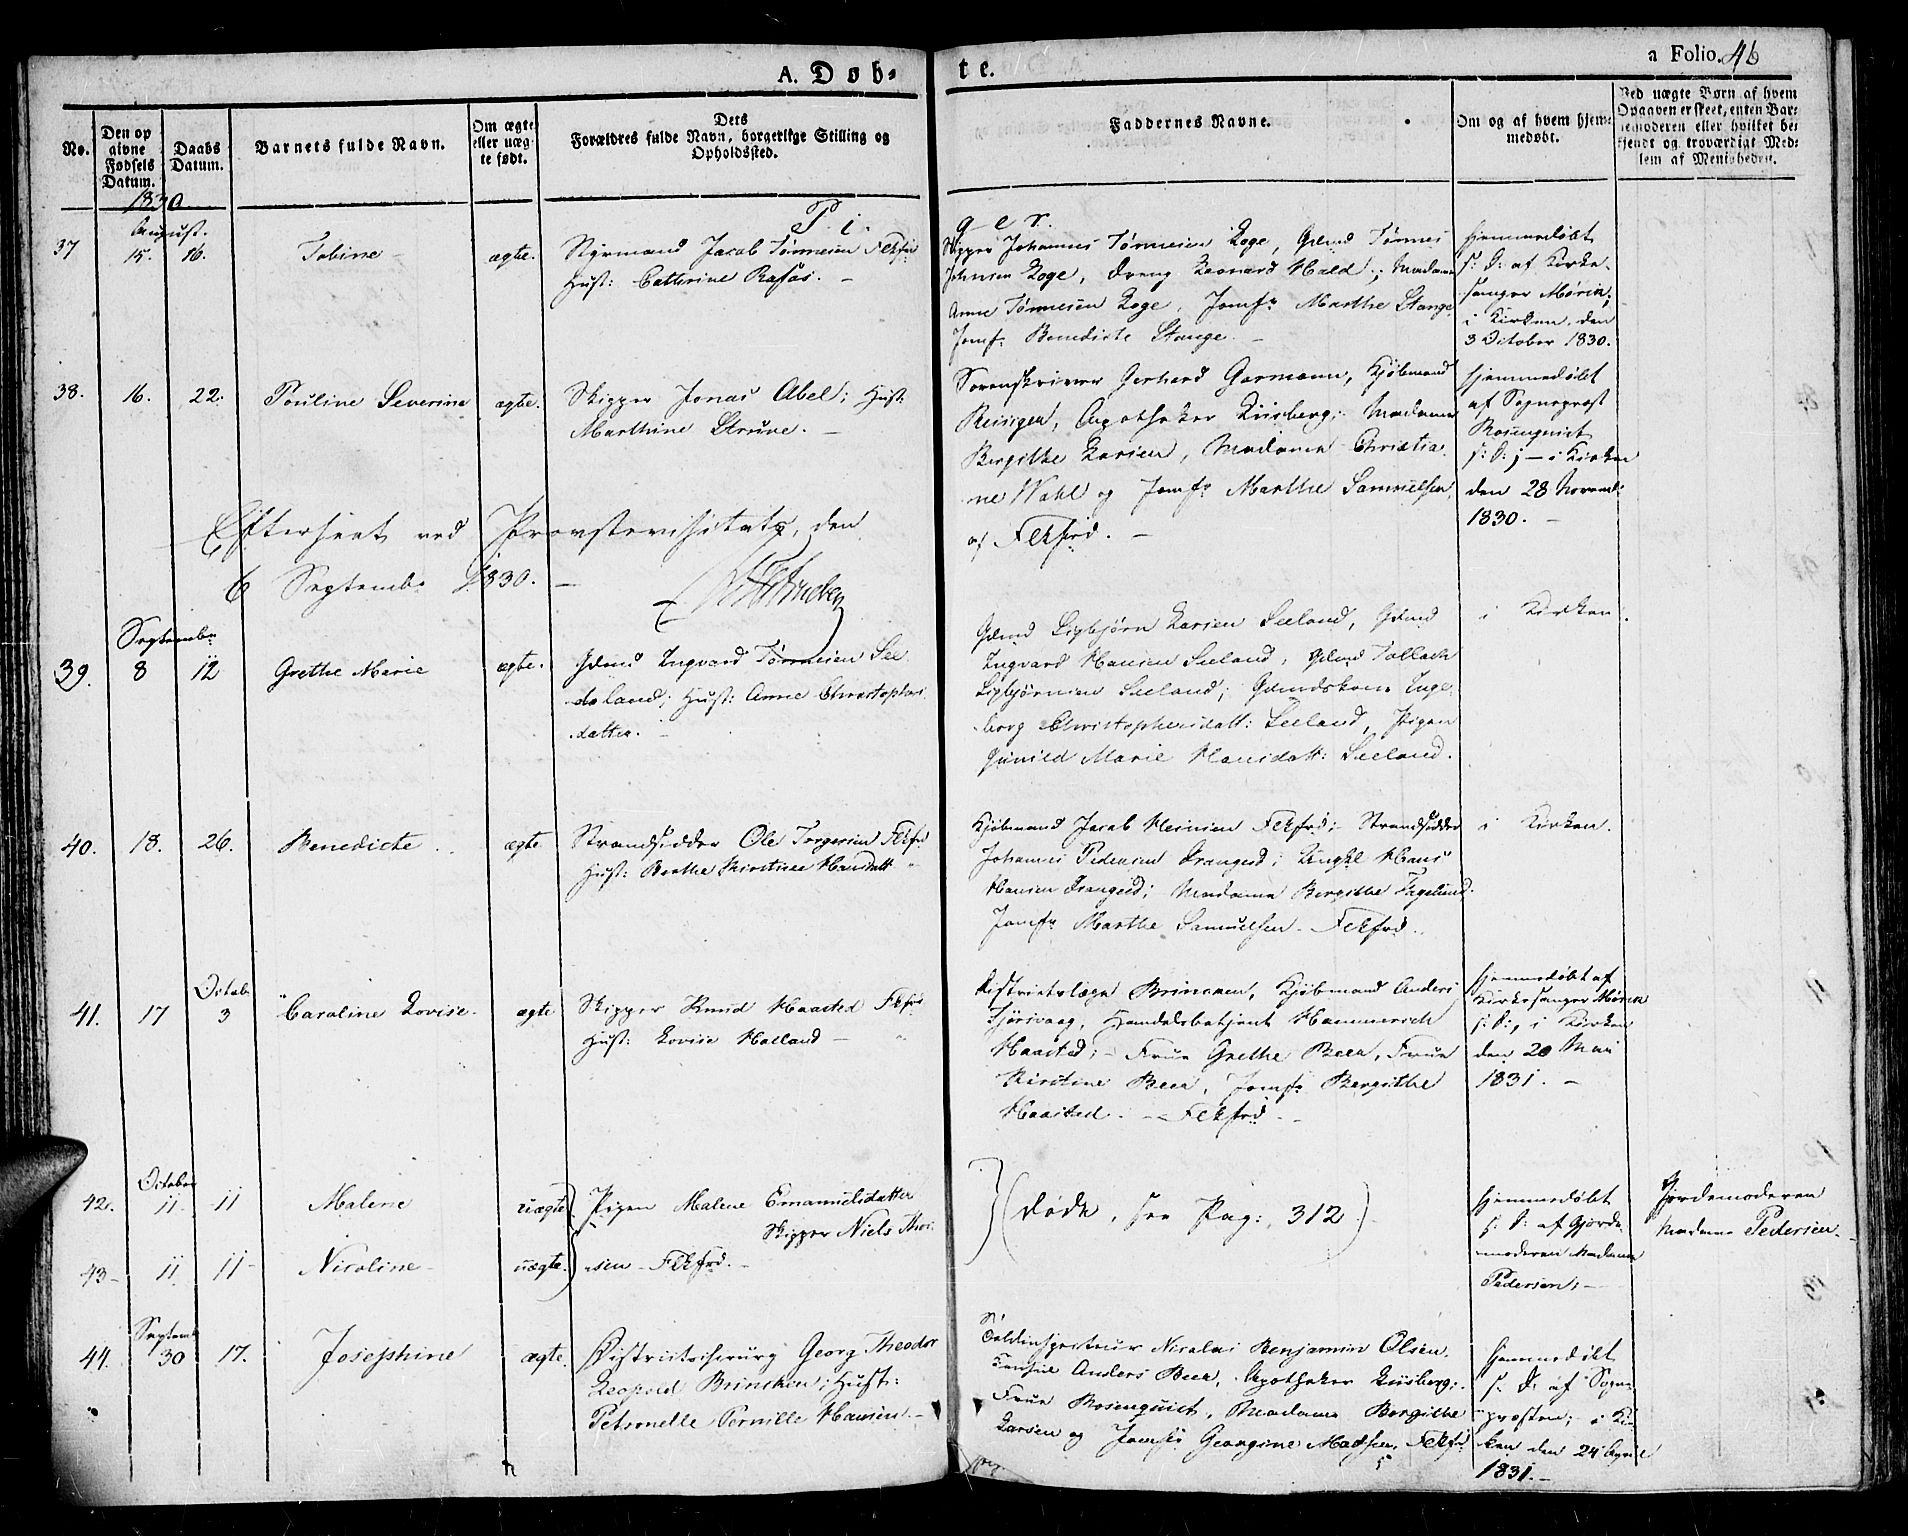 A. Døb-
te.
a Folio. 46
No.
Den op
givne
Fødsels
Datum.
Daabs
Datum.
Barnets fulde Navn.
Om ægte
eller uæg-
te født.
Dets
Forældres fulde Navn, borgerlige Stilling og
Opholdssted.
Faddernes Navne.
Om og af hvem hjem-
medøbt.
Ved uægte Børn af hvem
Opgaven er skeet, enten Bar-
nemoderen eller hvilket be-
kjendt og troværdigt Med-
lem af Menigheden.
1830
August.
Pi
ger.
37 15. 16. Tobine ægte. Styrmand Jacob Tønnesen Flekfrd
Hust: Cathrine Rafos.
Skipper Johannes Tønnesen Loge, Gdmd Tønnes
Johnsen Loge, Dreng Leonard Hald.; Madame
Anne Tønnesen Loge, Jomfr Marthe Stange
Jomfr Benedicte Stange.
hjemmedøbt
s: D: af Kirke-
sanger Mørin
i Kirken, den
3 October 1830.
38. 16. 22. Pouline Severine ægte. Skipper Jonas Abel; Hust
Marthine Struve.
Sorenskriver Gerhard Garmann, Kjøbmand
Reisigen, Apotheker Liisberg; Madame
Bergithe Larsen, Madame Christia-
ne Wahl og Jomfr Marthe Samuelsen,
af Flekfrd.
hjemmedøbt
af Sognepræst
Rosenquist
s: D: ; i Kirken
den 28 Novemb:
1830.
Efterseet ved Provstevisitats, den
6 Septembr 1830.
Septembr
39. 8 12 Grethe Marie ægte. Gdmd Ingvard Tønnesen See
deland; Hust: Anne Christophers
datter.
Gdmd Sigbjørn Larsen Seeland, Gdmd
Ingvard Hansen Seeland, Gdmd Tollach
Sigbjørnsen Seeland; Gdmdskone Inge-
borg Christophersdatt: Seeland, Pigen
Gunild Marie Hansdatt: Seeland.
i Kirken.
40. 18. 26. Benedicte ægte Strandsidder Ole Torgersen Flekfrd
Hust: Berthe Kirstine Hansdatt
Kjøbmand Jacob Heinsen Flekfrd; Strandsidder
Johannes Pedersen Drangeid; Ungkl Hans
Hansen Drangeid; Madame Bergithe Fagelund
Jomfr Marthe Samuelsen - Flekfrd.
i Kirken.
Octob
41. 17 3 Caroline Lovise ægte Skipper Knud Haasted Flekfrd
Hust: Lovise Holland
Districtslæge Brincken, Kjøbmand Anders
Tjørsvaag, Handelsbetjent Hammerich
Haasted; Frue Grethe Beer, Frue
Kirstine Beer, Jomfr Bergithe
Haasted. Flekfrd
hjemmedøbt af
Kirkesanger Mørin
s: D:, i Kirken
den 20 Mai
1831.
October
42. 11. 11 Malene uægte Pigen Malene Emanuelsdatter
Skipper Niels Thor-
43 11 11 Nicoline uægte. sen - Flekfrd.
(Døde, see Pag: 312)
hjemmedøbt
s: D: af Gjorde-
moderen Madame
Pedersen;
Gjordemoderen
Madame Pedersen.
Septembr
44. 30 17. Josephine ægte. Districtschirurg Georg Theodor
Leopold Brincken; Hust:
Petronelle Pernille Hansen.
Toldinspecteur Nicolai Benjamin Olsen,
Consul Anders Beer, Apotheker Liisberg;
Frue Rosenquist, Madame Bergithe
Larsen og Jomfr Georgine Madsen, Flekfrd
hjemmedøbt
s: D: af Sogne-
præsten; i Kir-
ken den 24 April
1831.